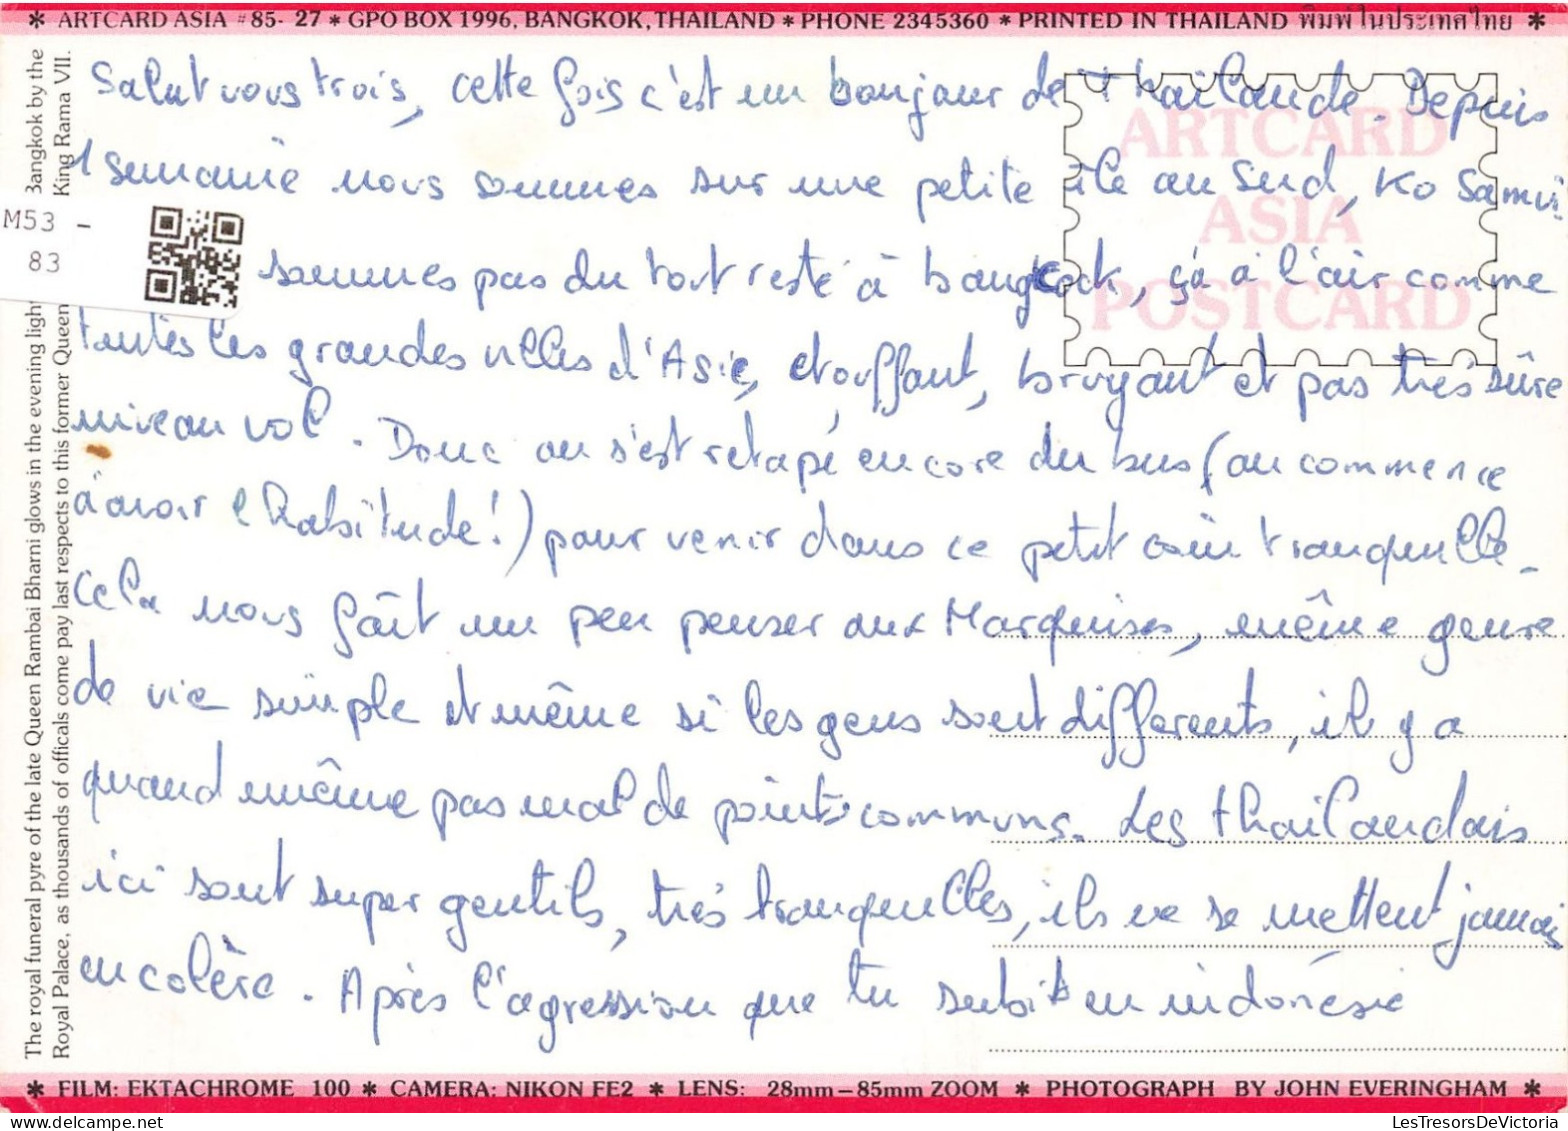 * ARTCARD ASIA #85- 27 * GPO BOX 1996, BANGKOK, THAILAND * PHONE 2345360 * PRINTED IN THAILAND พิมพ์ในประเทศไทย *
Salut vous trois, cette fois c'est un bonjour de Thaïlande. Depuis
1 semaine nous sommes sur une petite île au Sud, Ko Samui.
sommes pas du tout resté à bangkock, ça a l'air comme
toutes les grandes villes d'Asie, etouffant, bruyant et pas très sûre
niveau vol. Donc on s'est retapé encore du bus (on commence
à avoir l'habitude!) pour venir dans ce petit coin tranquille.
Cela nous fait un peu penser aux Marquises, même genre
de vie simple et même si les gens sont differents, il y a
quand même pas mal de points communs. Les thaïlandais
ici sont super gentils, très tranquilles, ils ne se mettent jamais
en colère. Après l'agression que tu subit en indonésie
ARTCARD
ASIA
POSTCARD
M53 -
83
The royal funeral pyre of the late Queen Rambai Bharni glows in the evening light
Bangkok by the
Royal Palace, as thousands of officals come pay last respects to this former Queen
King Rama VII.
* FILM: EKTACHROME 100 * CAMERA: NIKON FE2 * LENS: 28mm–85mm ZOOM * PHOTOGRAPH BY JOHN EVERINGHAM *
LesTresorsDeVictoria